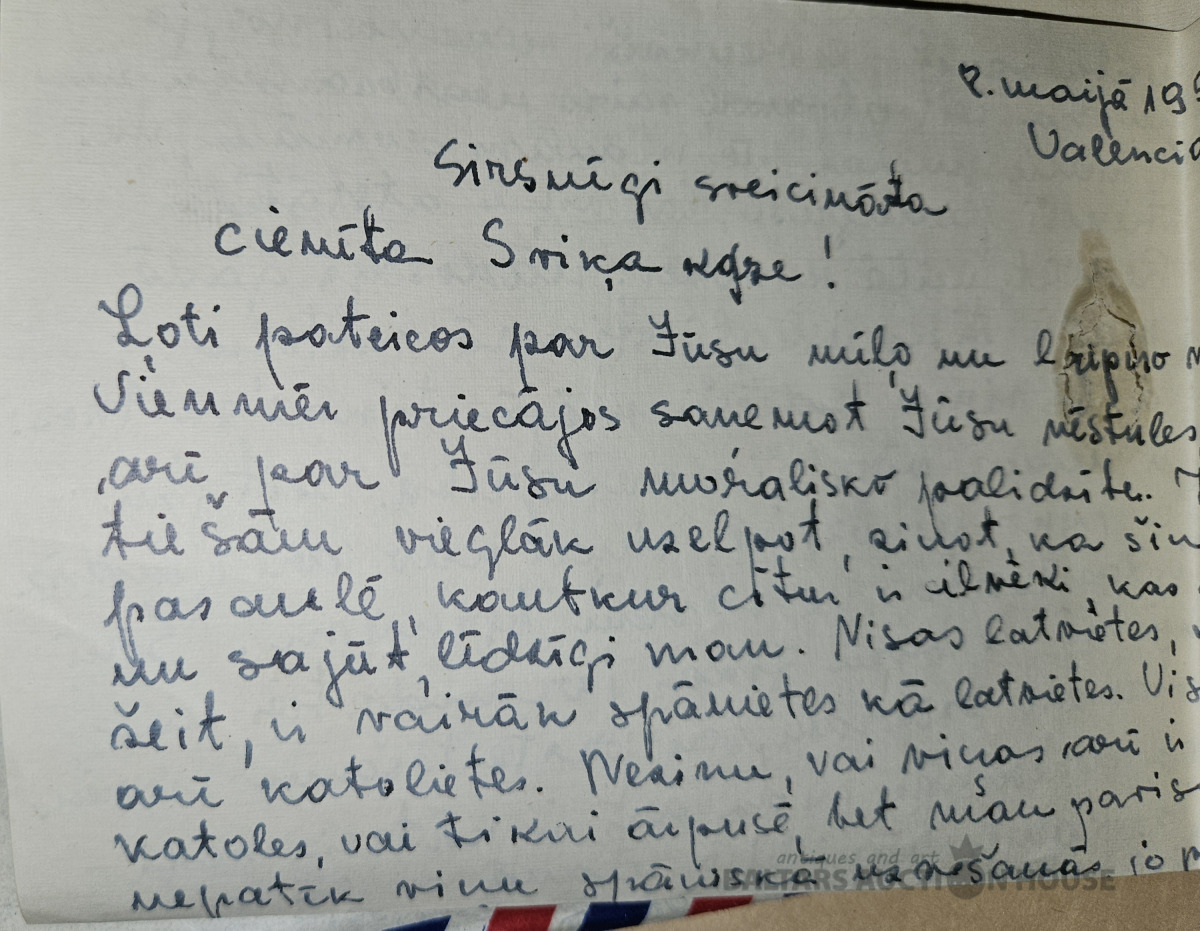 8. maijā 19
Valencia
Sirsnīgi sveicināta
cienīta Sviķa kdze!
Ļoti pateicos par Jūsu mīļo un laipno
Vienmēr priecājos saņemot Jūsu vēstules
arī par Jūsu morālisko palīdzību.
tiešām vieglāk uzelpot, zinot, ka šin
pasaulē, kautkur citur ir cilvēki, kas
un sajūt, līdzīgi man. Visas latvietes,
šeit, ir vairāk spānietes kā latvietes.
arī katolietes. Nezinu, vai viņas arī ir
katoles, vai tikai ārpusē, bet man
nepatīk viņu spāniskā uzvešanās, jo
antiques and art
BALTARS AUCTION HOUSE